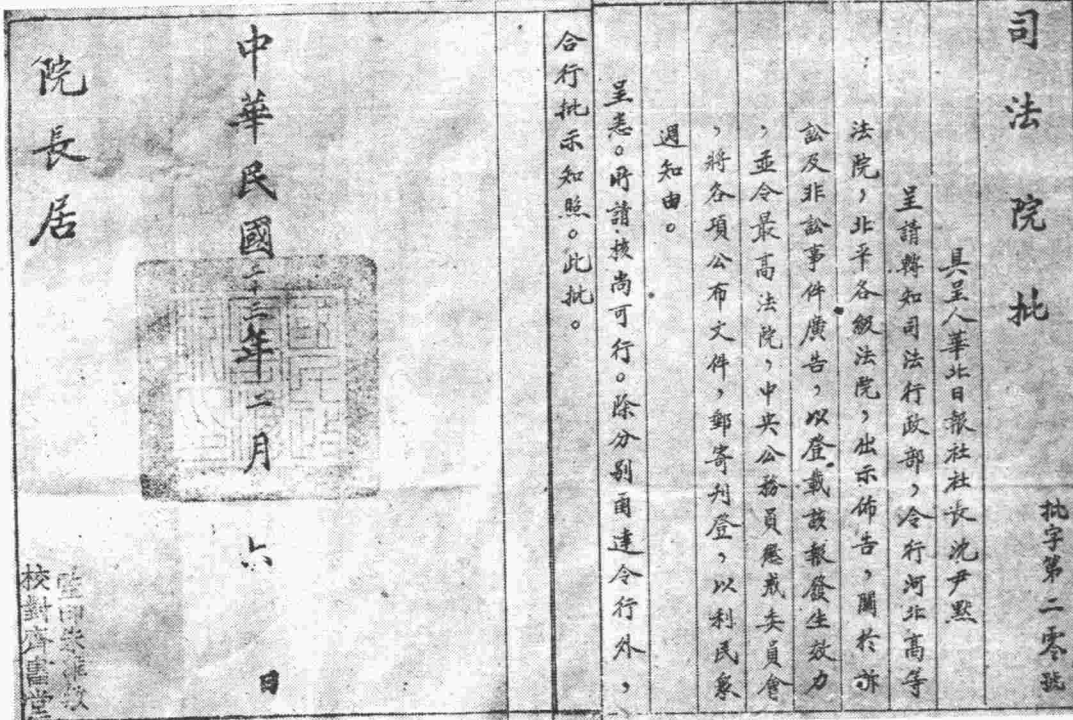 司法院批
批字第二零號
具呈人華北日報社社長沈尹默
呈請轉知司法行政部，令行河北高等
法院，北平各級法院，出示佈告，關於訴
訟及非訟事件廣告，以登載該報發生效力
，並令最高法院，中央公務員懲戒委員會
，將各項公布文件，郵寄刋登，以利民衆
週知由。
呈悉。所請核尚可行。除分別函達令行外，
合行批示知照。此批。
中華民國二十三年二月六日
院長居
監印朱
校對齊